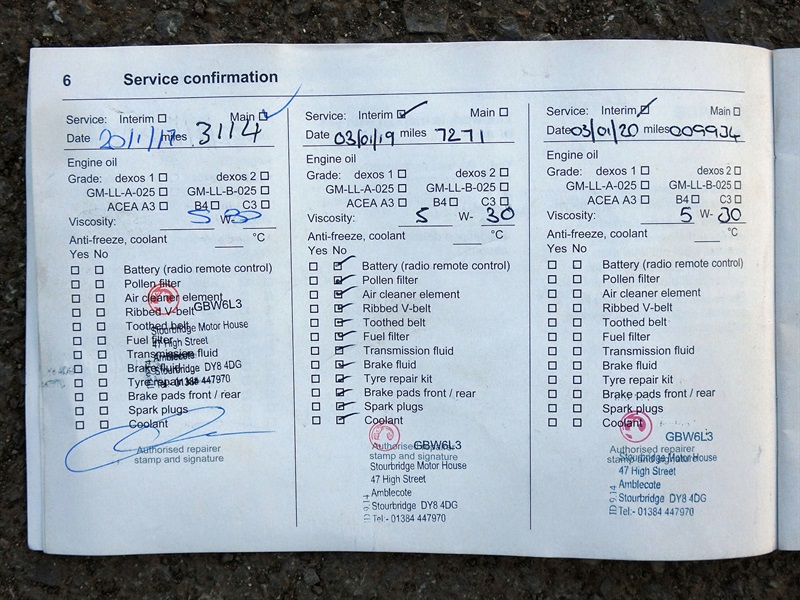 6 Service confirmation
Service: Interim Main
Date 20/1/17 miles 3114
Engine oil
Grade: dexos 1 dexos 2
GM-LL-A-025 GM-LL-B-025
ACEA A3 B4 C3
Viscosity: 5 W- 30
Anti-freeze, coolant °C
Yes No
Battery (radio remote control)
Pollen filter
Air cleaner element
Ribbed V-belt
Toothed belt
Fuel filter
Transmission fluid
Brake fluid
Tyre repair kit
Brake pads front / rear
Spark plugs
Coolant
GBW6L3
Stourbridge Motor House
47 High Street
Amblecote
Stourbridge DY8 4DG
Tel:- 01384 447970
Authorised repairer
stamp and signature
Service: Interim Main
Date 03/01/19 miles 7271
Engine oil
Grade: dexos 1 dexos 2
GM-LL-A-025 GM-LL-B-025
ACEA A3 B4 C3
Viscosity: 5 W- 30
Anti-freeze, coolant °C
Yes No
Battery (radio remote control)
Pollen filter
Air cleaner element
Ribbed V-belt
Toothed belt
Fuel filter
Transmission fluid
Brake fluid
Tyre repair kit
Brake pads front / rear
Spark plugs
Coolant
GBW6L3
Authorised repairer
stamp and signature
Stourbridge Motor House
47 High Street
Amblecote
Stourbridge DY8 4DG
Tel:- 01384 447970
Service: Interim Main
Date 03/01/20 miles 009934
Engine oil
Grade: dexos 1 dexos 2
GM-LL-A-025 GM-LL-B-025
ACEA A3 B4 C3
Viscosity: 5 W- 30
Anti-freeze, coolant °C
Yes No
Battery (radio remote control)
Pollen filter
Air cleaner element
Ribbed V-belt
Toothed belt
Fuel filter
Transmission fluid
Brake fluid
Tyre repair kit
Brake pads front / rear
Spark plugs
Coolant
GBW6L3
Authorised repairer
stamp and signature
Stourbridge Motor House
47 High Street
Amblecote
Stourbridge DY8 4DG
Tel:- 01384 447970